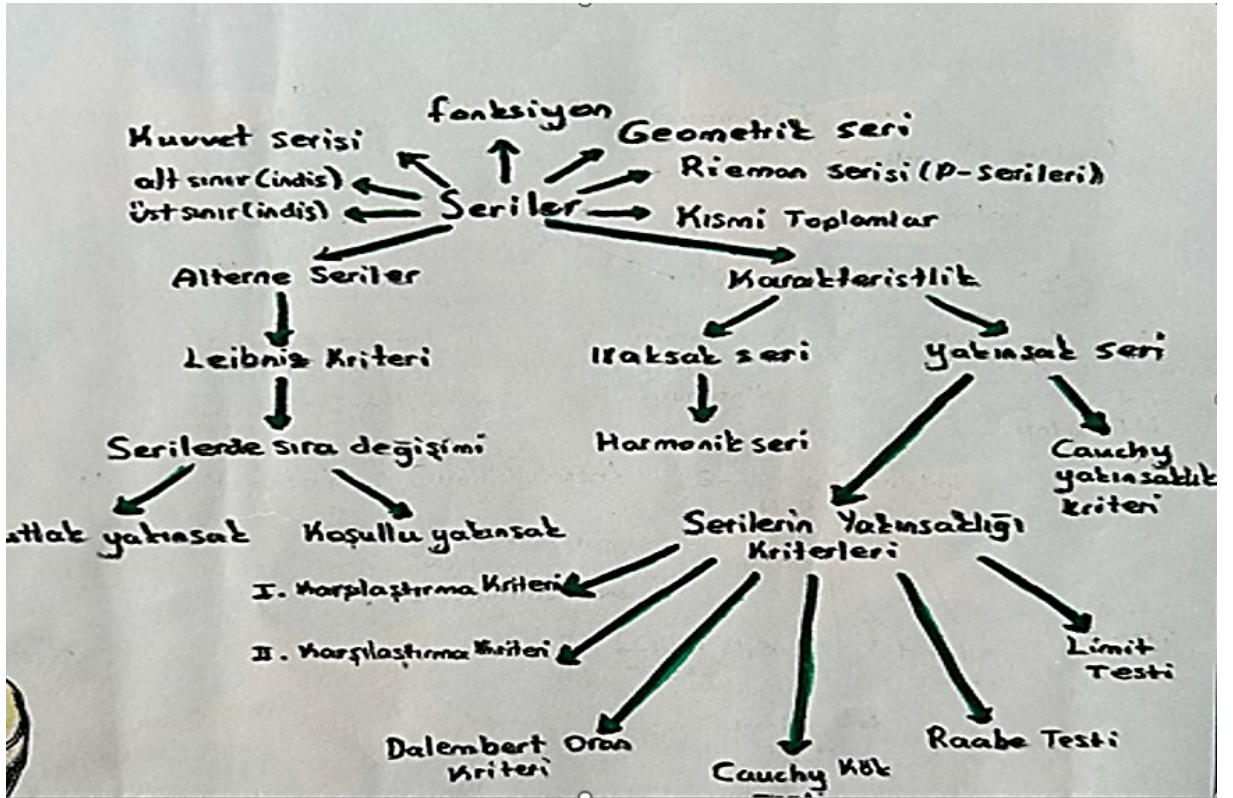 fonksiyon
Kuvvet serisi
Geometrik seri
alt sınır (indis)
Rieman serisi (P-serileri)
üst sınır (indis)
Seriler
Kısmi Toplamlar
Alterne Seriler
Karakteristlik
Leibniz Kriteri
Iraksak seri
yakınsak seri
Serilerde sıra değişimi
Harmonik seri
Cauchy
yakınsaklık
kriteri
yakınsak
Koşullu yakınsak
Serilerin Yakınsaklığı
Kriterleri
I. Karşılaştırma Kriteri
II. Karşılaştırma Kriteri
Limit
Testi
Dalembert Oran
Kriteri
Raabe Testi
Cauchy Kök